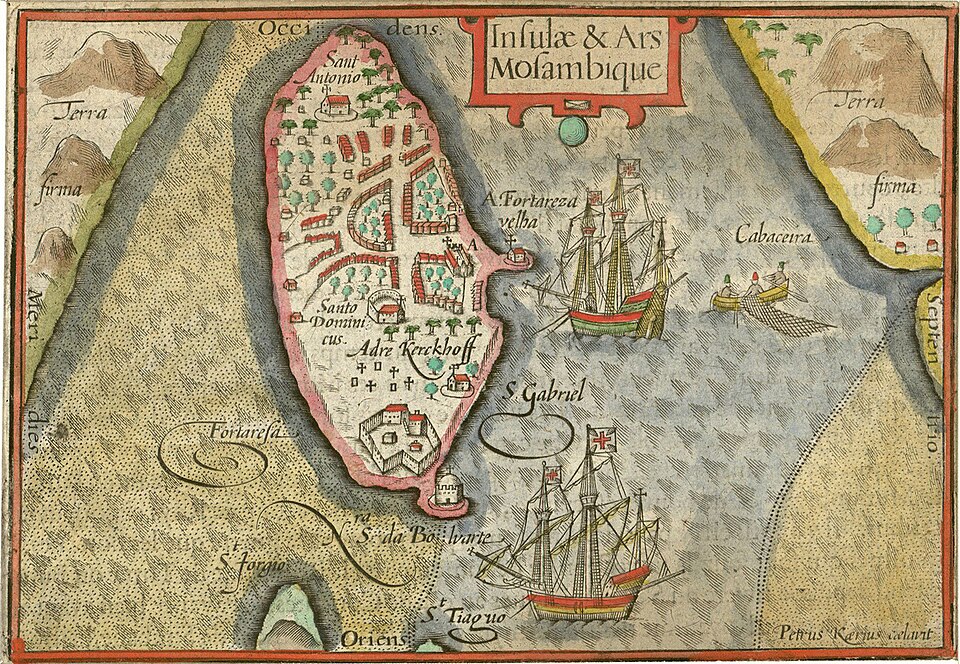 Occi dens
Insulæ & Ars
Mosambique
Sant
Antonio
Terra
firma
Terra
firma
A Fortareza
velha
Cabaceira
A
Santo
Domini
cus.
Adre Kerckhoff
Meri dies
Septen trio
S. Gabriel
Fortaresa
Nrs S. da Bolwarte
St Jorgio
St Tiaguo
Oriens
Petrus Kærius cælavit